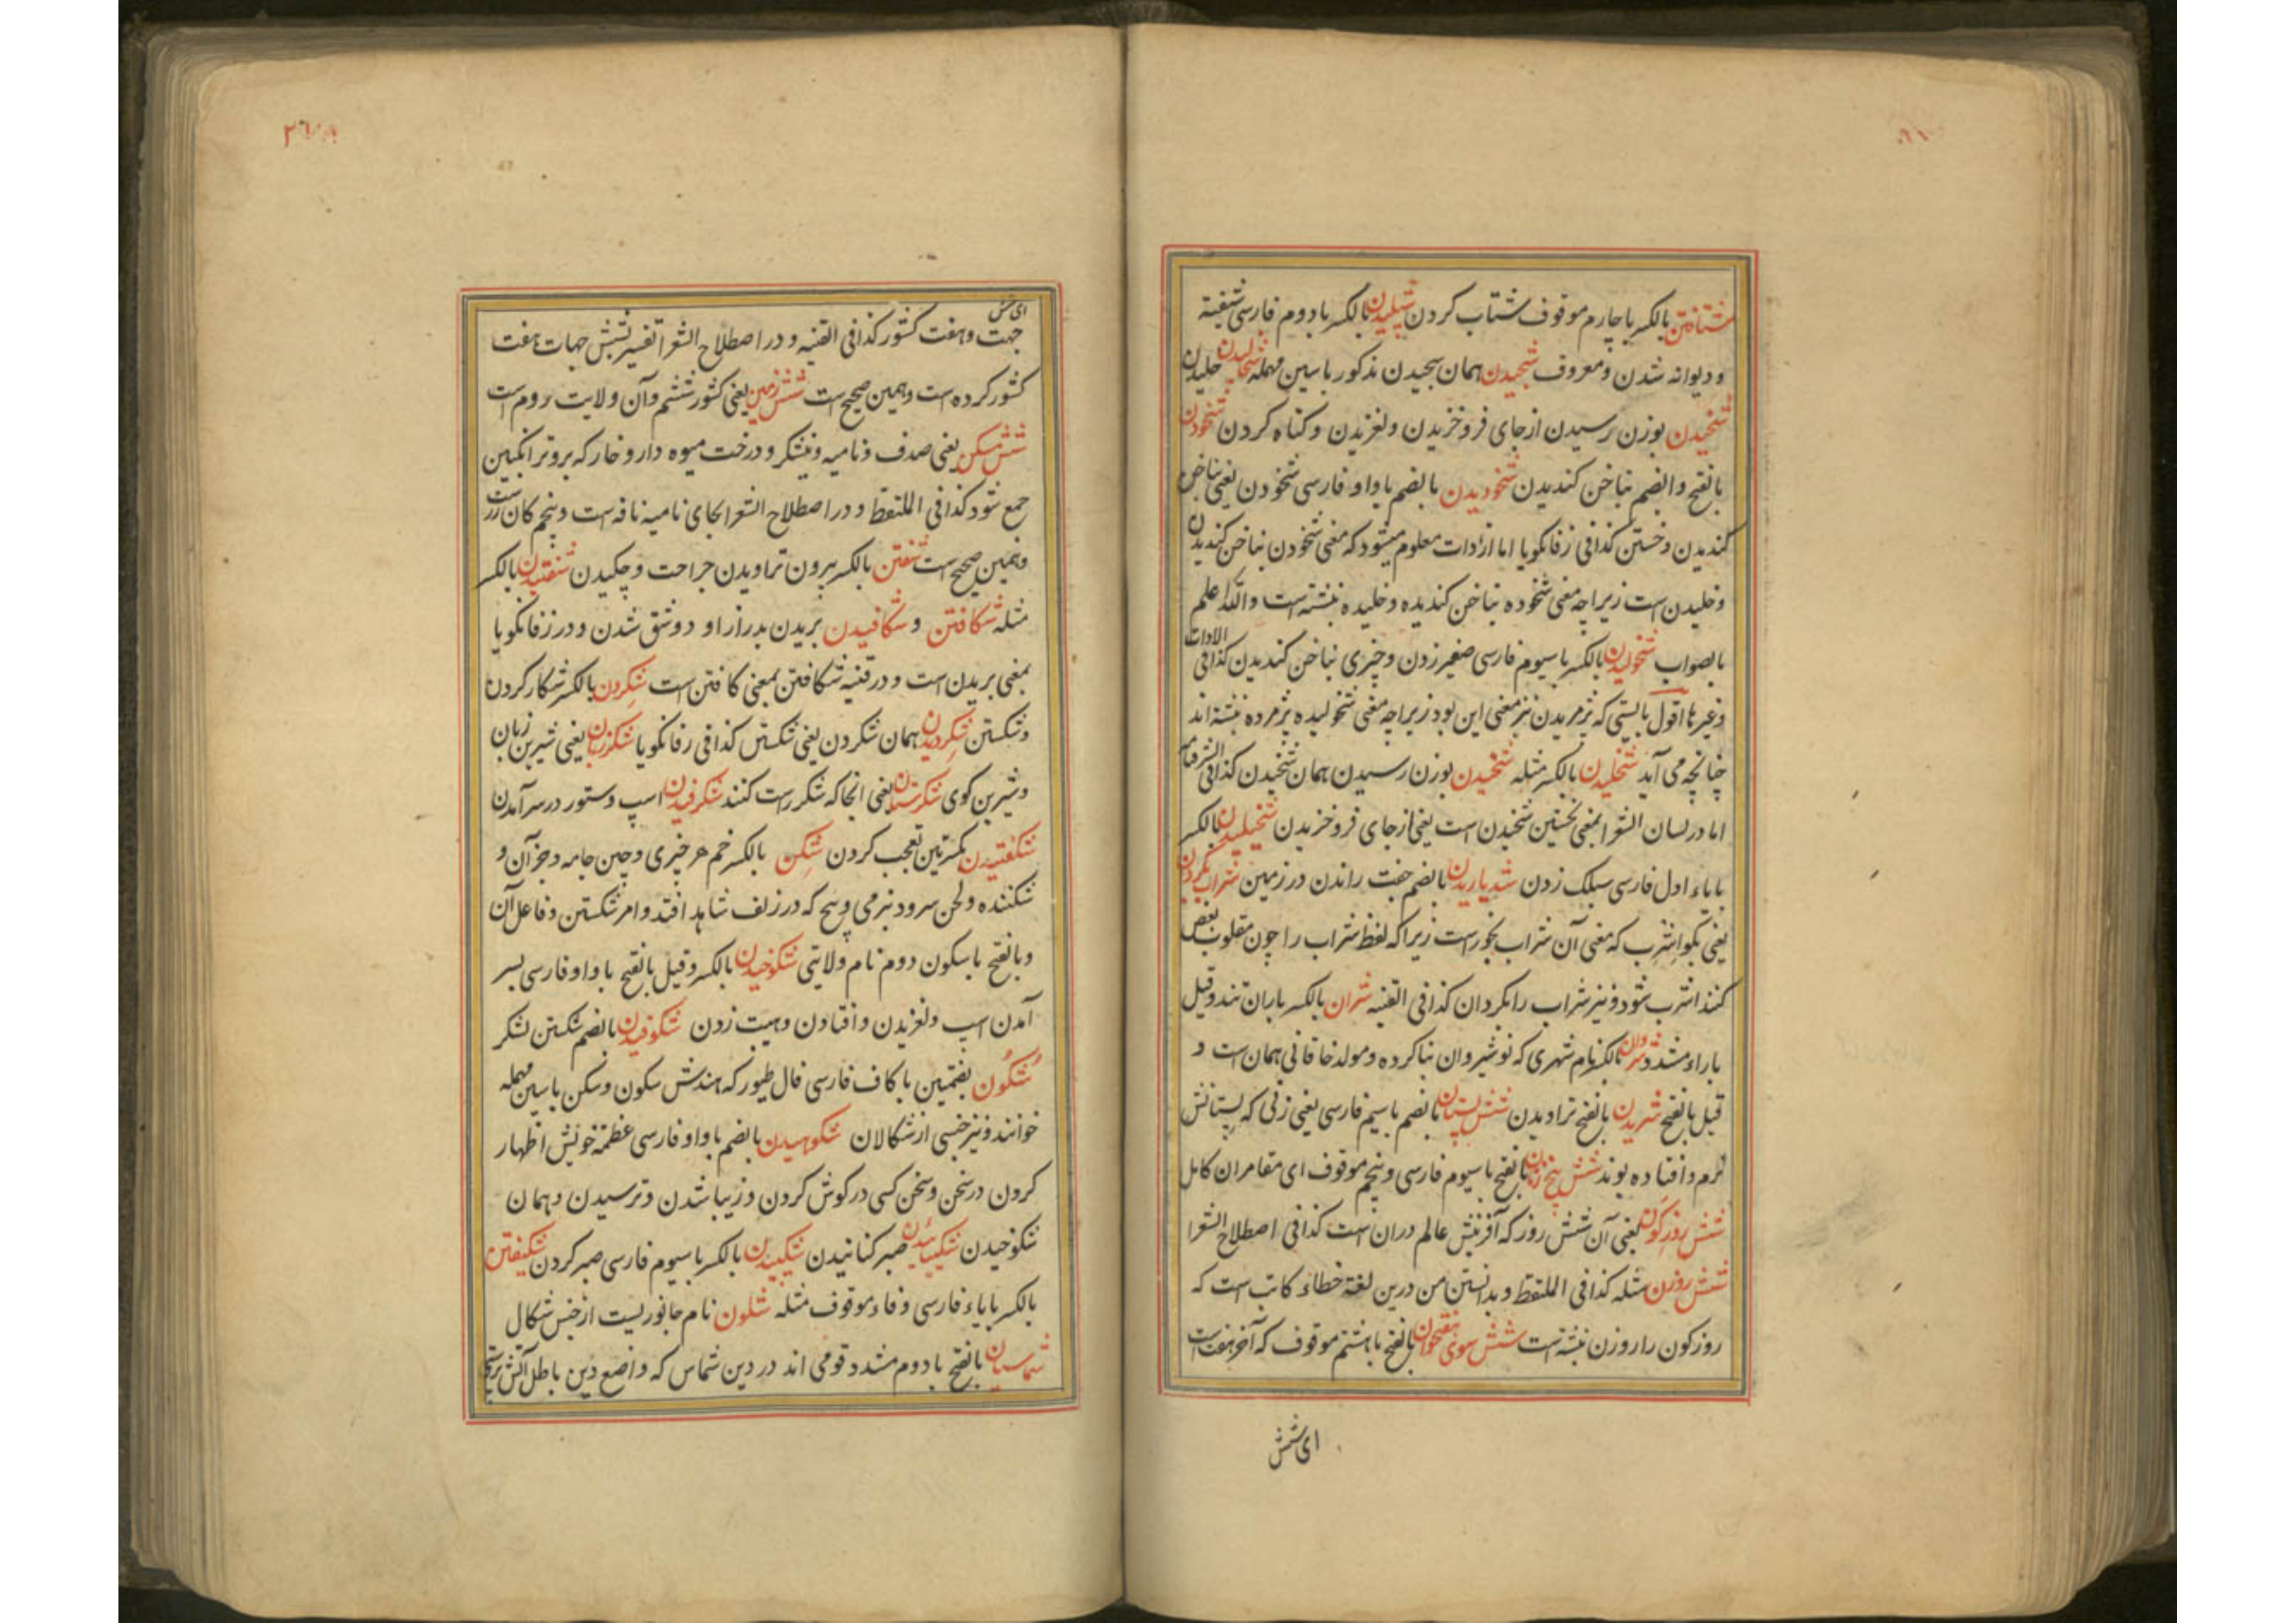 شتافتن بالکسر با چارم موقوف شتاب کردن شپلیدن بالکسر با دوم فارسی شیفته
و دیوانه شدن و معروف شجیدن همان سجیدن مذکور با سین مهمله شخالیدن خلیدن
شخیدن بوزن رسیدن از جای فرو خزیدن و لغزیدن و کناه کردن شخودن
بالفتح و الضم بناخن کندیدن شخودیدن بالضم با واو فارسی شخودن یعنی بناخن
کندیدن و خستن کذا فی زفانکویا اما از ادات معلوم میشود که معنی شخودن بناخن کندیدن
و خلیدن است زیراچه معنی شخوده بناخن کندیده و خلیده نبشته است والله اعلم
بالصواب شخولیدن بالکسر با سیوم فارسی صفیر زدن و چیزی بناخن کندیدن کذا فی الادات
و غیرها اقول بایستی که پژمریدن نیز معنی این بود زیراچه معنی شخولیده پژمرده نبشته اند
چنانچه می آید شخلیدن بالکسر مثله شخیدن بوزن رسیدن همان شخیدن کذا فی الشرفنامه
اما در لسان الشعرا بمعنی نخستین شخیدن است یعنی از جای فرو خزیدن شخیلیدن بالکسر
با یاء اول فارسی سبلک زدن شدیاریدن بالضم جفت راندن در زمین شراب بکردان
یعنی بکو اشرب که معنی آن شراب بخور است زیراکه لفظ شراب را چون مقلوب بعض
کنند اشرب شود و نیز شراب را بکردان کذا فی القنیه شران بالکسر باران تند و قیل
با راء مشدد شروان بالکسر نام شهری که نوشیروان بنا کرده و مولد خاقانی همان است و
قیل بالفتح شریدن بالفتح تراویدن شش پستان بالضم با سیم فارسی یعنی زنی که پستانش
نرم و افتاده بوند شش پنج زنان بالفتح با سیوم فارسی و پنجم موقوف ای مقامران کامل
شش روز کون یعنی آن شش روز که آفرینش عالم دران است کذا فی اصطلاح الشعرا
شش روزن مثله کذا فی الملتقط و بدانستن من درین لغة خطاء کاتب است که
روز کون را روزن نبشته است شش سوی هفتخوان بالفتح با هشتم موقوف که آخر هفت است
ای شش
ای شش
جهت و هفت کشور کذا فی القنیه و در اصطلاح الشعرا تفسیر بشش جهات هفت
کشور کرده است و همین صحیح است شش زمین یعنی کشور ششم و آن ولایت روم است
شش مسکن یعنی صدف و نامیه و نیشکر و درخت میوه دار و خار که برو ترانکبین
جمع شود کذا فی الملتقط و در اصطلاح الشعرا بجای نامیه نافه است و پنجم کان زرست
و همین صحیح است شفتن بالکسر بیرون تراویدن جراحت و چکیدن شفتیدن بالکسر
مثله شکافتن و شکافیدن بریدن بدرازا و دو شق شدن و در زفانکویا
بمعنی بریدن است و در قنیه شکافتن بمعنی کافتن است شکردن بالکسر شکار کردن
و شکستن شکردیدن همان شکردن یعنی شکستن کذا فی زفانکویا شکرزبان یعنی شیرین زبان
و شیرین کوی شکرستان یعنی انجا که شکر راست کنند شکرفیدن اسپ و ستور در سر آمدن
شکفتیدن بکسرتین تعجب کردن شکن بالکسر خم هر چیزی و چین جامه و جز آن و
شکننده و لحن سرود نیز می و پیچ که در زلف شاهد افتد و امر شکستن و فاعل آن
و بالفتح با سکون دوم نام ولایتی شکوخیدن بالکسر و قیل بالفتح با واو فارسی بسر
آمدن اسپ و لغزیدن و افتادن و هیبت زدن شکوفیدن بالضم شکستن لشکر
شکون بضمتین با کاف فارسی فال طیور که هندش سکون و سکن با سین مهمله
خوانند و نیز جنسی از شکالان شکوهیدن بالضم با واو فارسی عظمة خویش اظهار
کردن در سخن و سخن کسی در کوش کردن و زیبا شدن و ترسیدن و همان
شکوخیدن شکیبانیدن صبر کنانیدن شکیبیدن بالکسر با سیوم فارسی صبر کردن شکیفتن
بالکسر با یاء فارسی و فاء موقوف مثله شلون نام جانوریست از جنس شکال
شماسیان بالفتح با دوم مشدد قومی اند در دین شماس که واضع دین باطل آتش پرستی